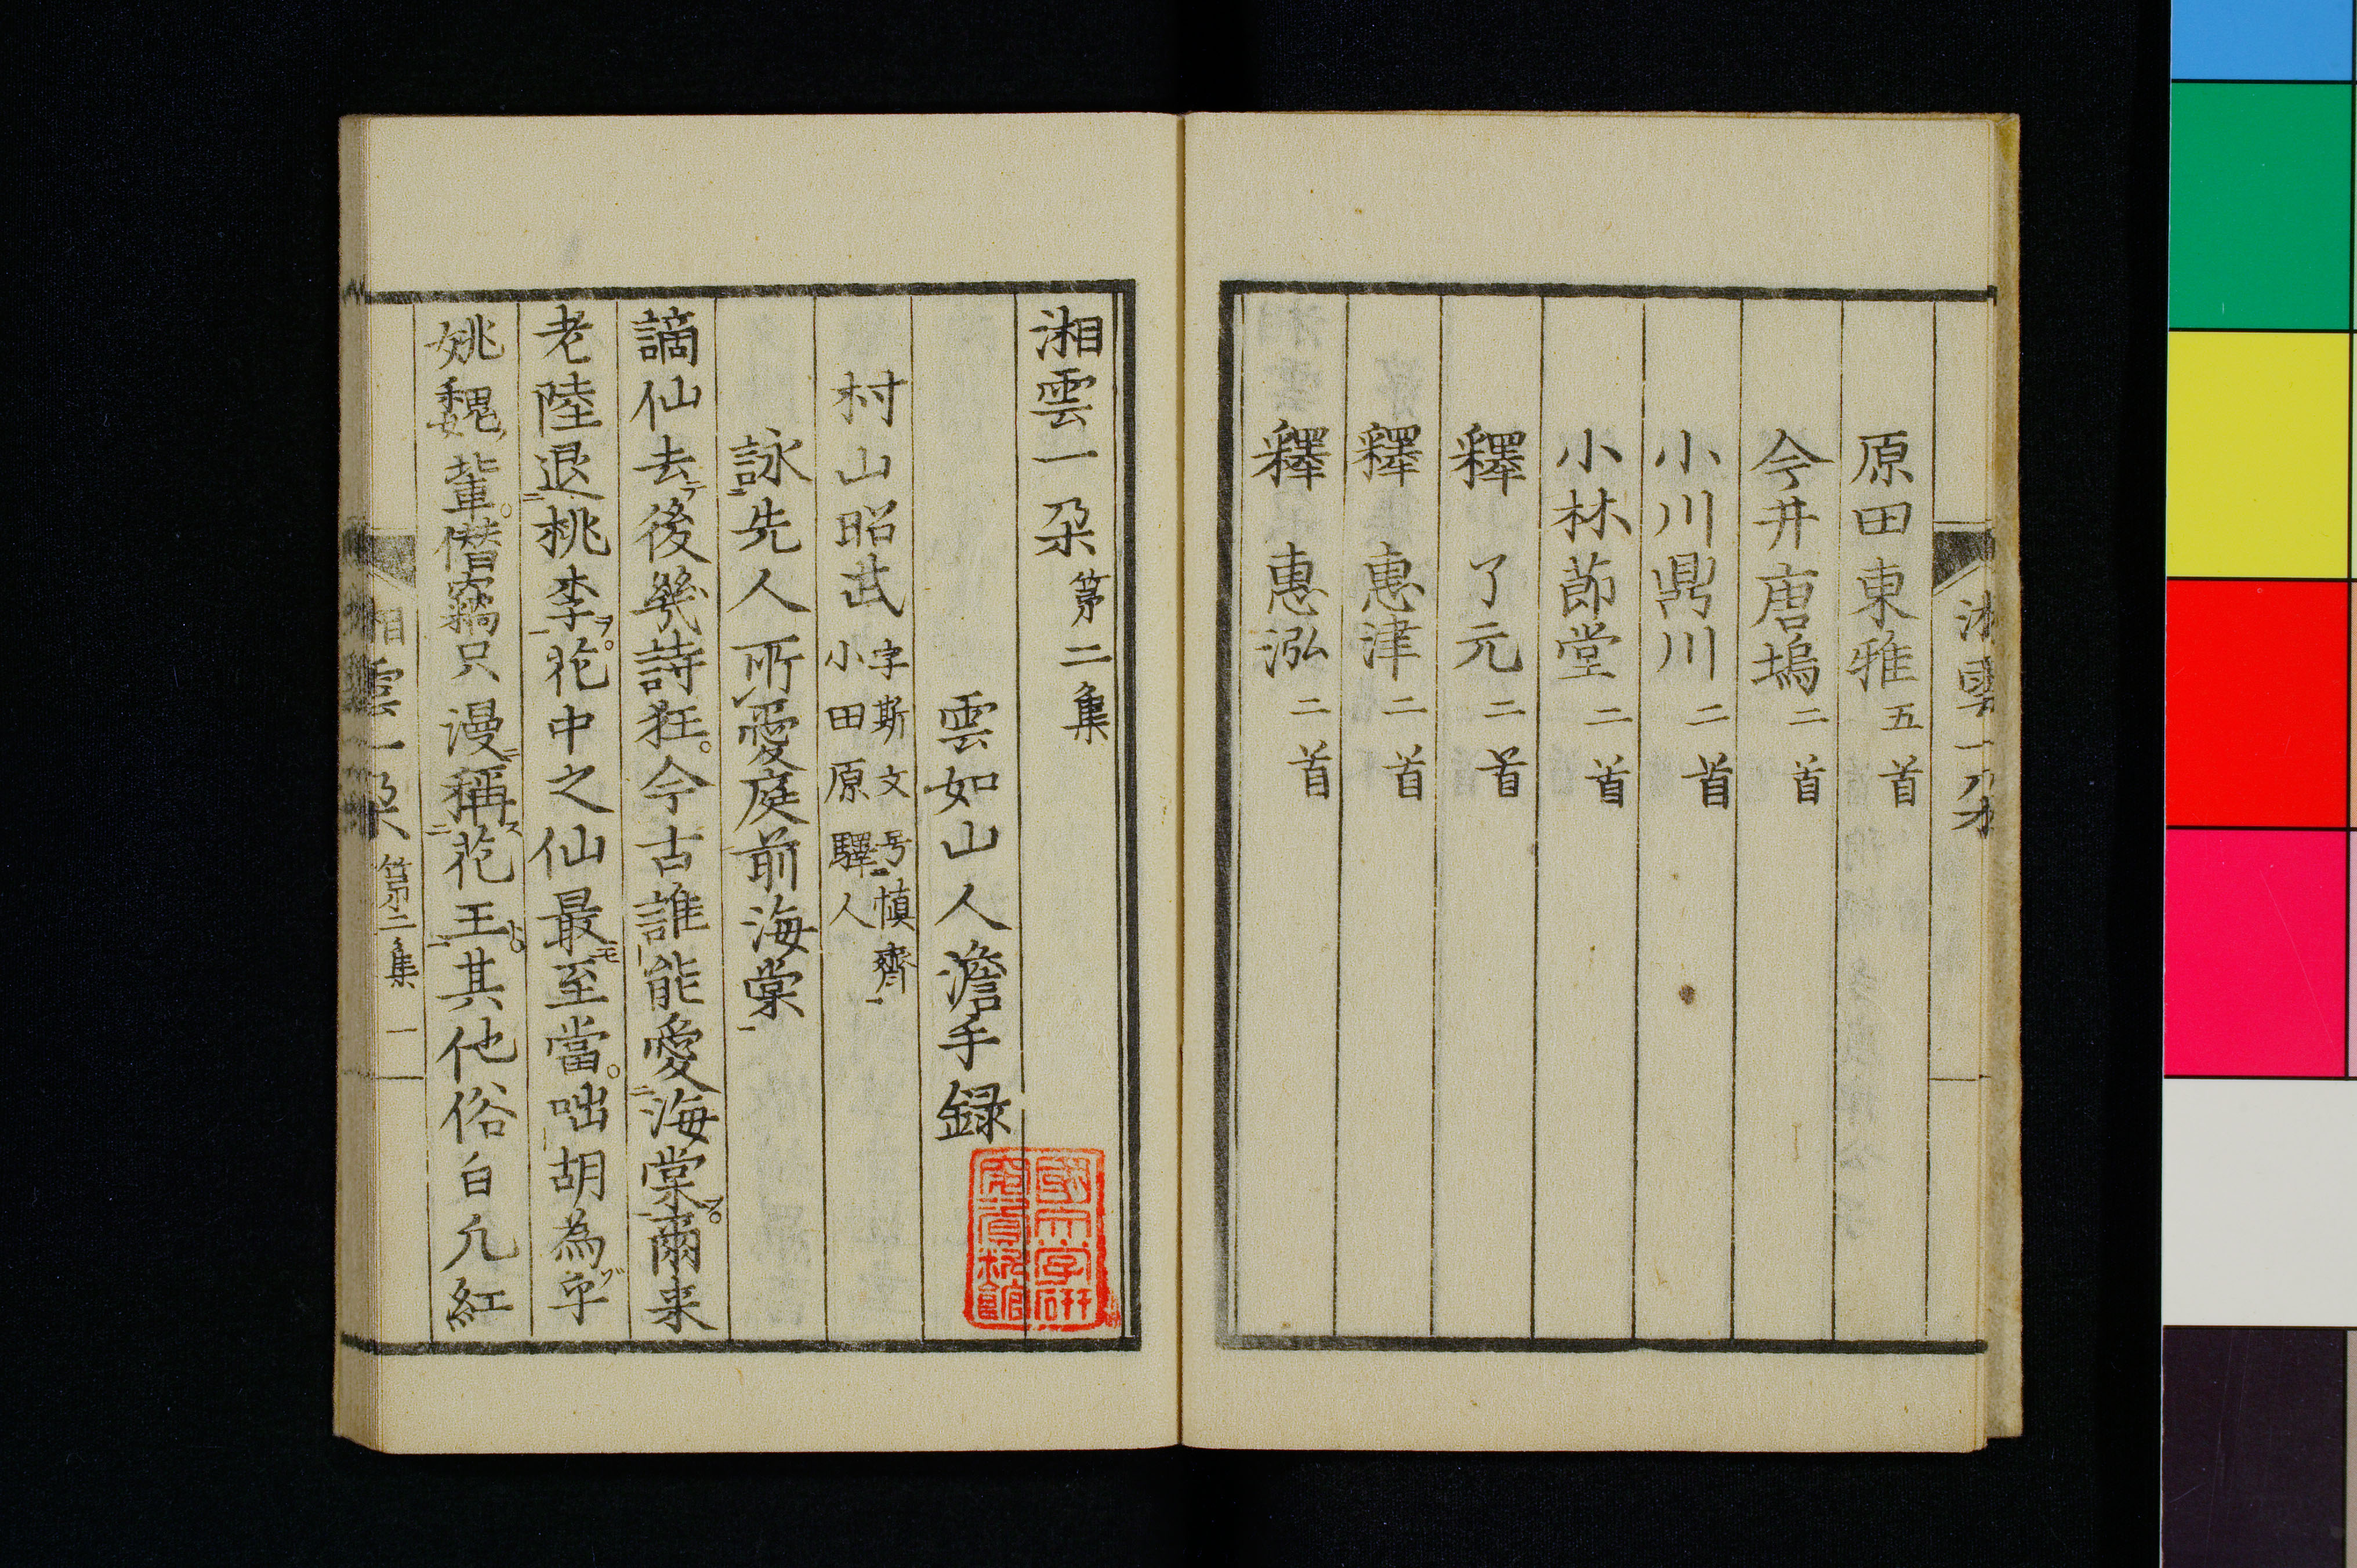 原田東雅五首
今井唐塢二首
小川鼎川二首
小林節堂二首
釋 了元二首
釋 惠津二首
釋 惠泓二首
湘雲一朶第二集
雲如山人澹手録
村山昭武字斯文号慎齋小田原驛人
詠先人所愛庭前海棠
謫仙去後幾詩狂。今古誰能愛海棠。爾来
老陸退桃李。花中之仙最至當。咄胡為乎
姚魏輩。僭竊只漫稱花王。其他俗白凢紅
湘雲一朶 第二集 一
國文学研究資料館